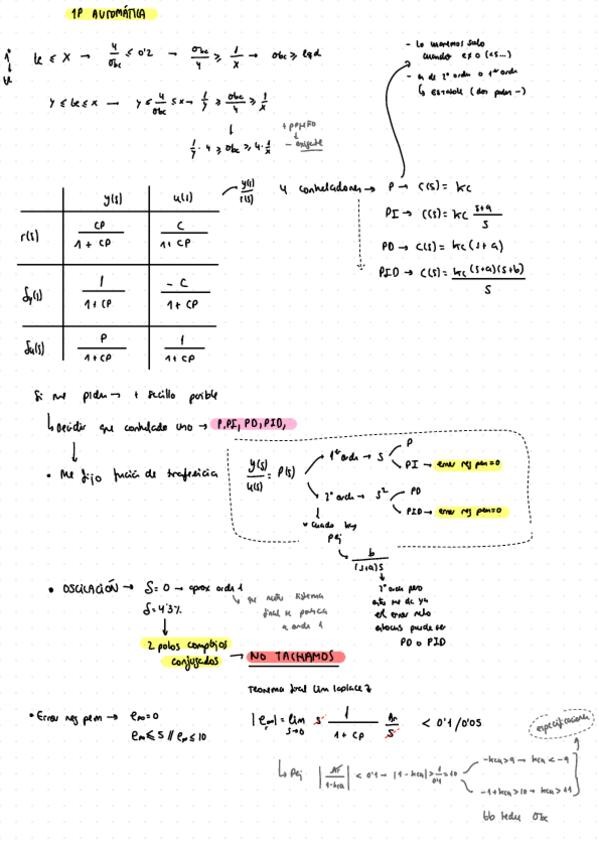 1P AUTOMÁTICA
≤ x → 4/σbc ≤ 0'2 → σbc/4 ≥ 1/x → σbc ≥
y ≤ ≤ x → y ≤ 4/σbc ≤ x → 1/y ≥ σbc/4 ≥ 1/x
1/y · 4 ≥ σbc ≥ 4 · 1/x
- exigente
- Lo usaremos solo
cuando
- de 2º orden o 1º orden
↳ estable (dos polos -)
y(s) u(s)
y(s)/r(s)
r(s) CP/1 + CP C/1 + CP
δy(s) 1/1 + CP - C/1 + CP
δu(s) P/1 + CP 1/1 + CP
4 controladores → P → C(s) = kc
PI → C(s) = kc (s+a)/s
PD → C(s) = kc (s+a)
PID → C(s) = kc (s+a)(s+b)/s
Si me piden → + sencillo posible
↳ Decidir que controlador uso → P, PI, PD, PID,
• Me fijo función de trasferencia
y(s)/u(s) = P(s)
1er orden → s
P
PI → error reg perm = 0
2º orden → s²
PD
PID → error reg perm = 0
• cuando hay
pej
b/(s+a)s
2º orden pero
PD o PID
• OSCILACIÓN → δ = 0 → aprox orden 1
que nuestro sistema
final se parezca
a orden 1
δ = 4'3%
2 polos complejos
conjugados → NO TACHAMOS
Teorema final lim laplace
• Error reg perm → e∞ = 0
e∞ ≤ 5 // e∞ ≤ 10
|e∞| = lim s→0 s 1/1 + CP Ar/s < 0'1 / 0'05
especificaciones
↳ Pej |Ar/1-kca| < 0'1 → |1 - kca| > 1/0'1 = 10
-kca > 9 → kca < -9
-1 + kca > 10 → kca > 11
σbc